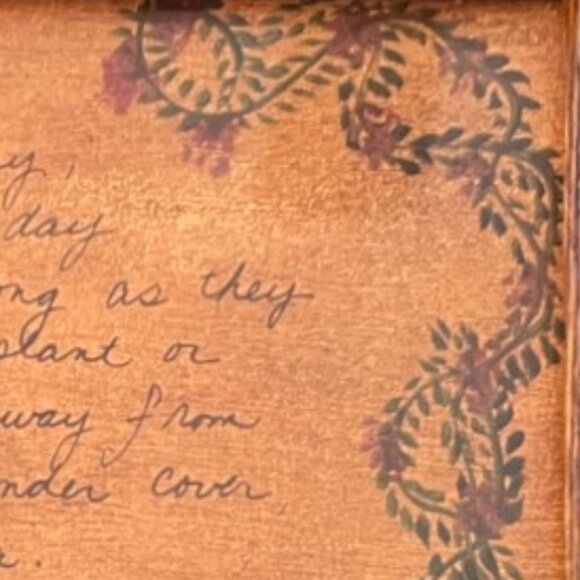 y,
day
ong as they
plant or
way from
nder cover,
r.